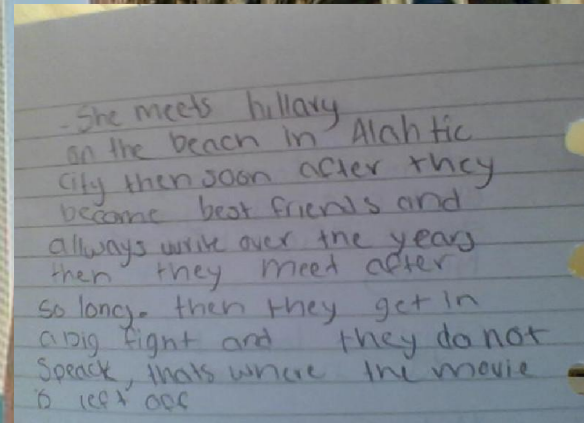 - She meets hillary
on the beach in Alahtic
City then soon after they
become best friends and
allways write over the years
then they meet after
so long. then they get in
a big fight and they do not
speack, thats where the movie
is left off